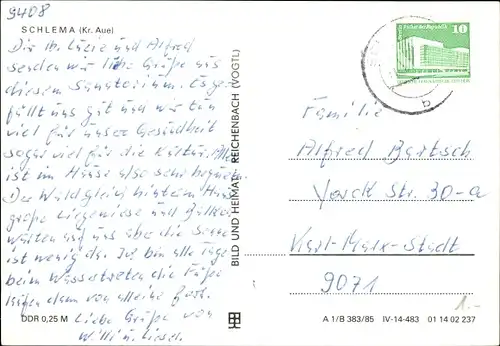 9408
SCHLEMA (Kr. Aue)
Ihr lb. Luzie und Alfred
senden wir liebe Grüße aus
diesem Sanatorium. Es ge-
fällt uns gut und wir tun
viel für unsere Gesundheit
sogar viel für die Kultur. Alles
ist im Hause also sehr bequem.
Der Wald gleich hinterm Haus
große Liegewiese und Balkon
warten auf uns aber die Sonne
ist wenig da. Ich bin alle Tage
beim Wassertreten die Füße
laufen dann von alleine
Liebe Grüße von
Willi u. Liesel.
DDR 0,25 M
BILD UND HEIMAT REICHENBACH (VOGTL)
10
Palast der Republik
b
Familie
Alfred Bartsch
Yorck Str. 30-a
Karl-Marx-Stadt
9071
1.-
A 1/B 383/85 IV-14-483 01 14 02 237